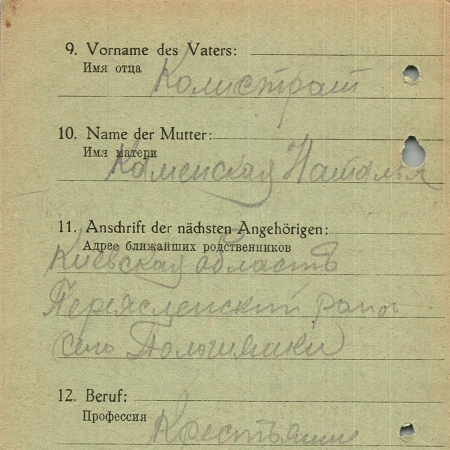 9. Vorname des Vaters:
Имя отца
Калистрат
10. Name der Mutter:
Имя матери
Каменская Наталья
11. Anschrift der nächsten Angehörigen:
Адрес ближайших родственников
Киевская область
район
село
12. Beruf:
Профессия